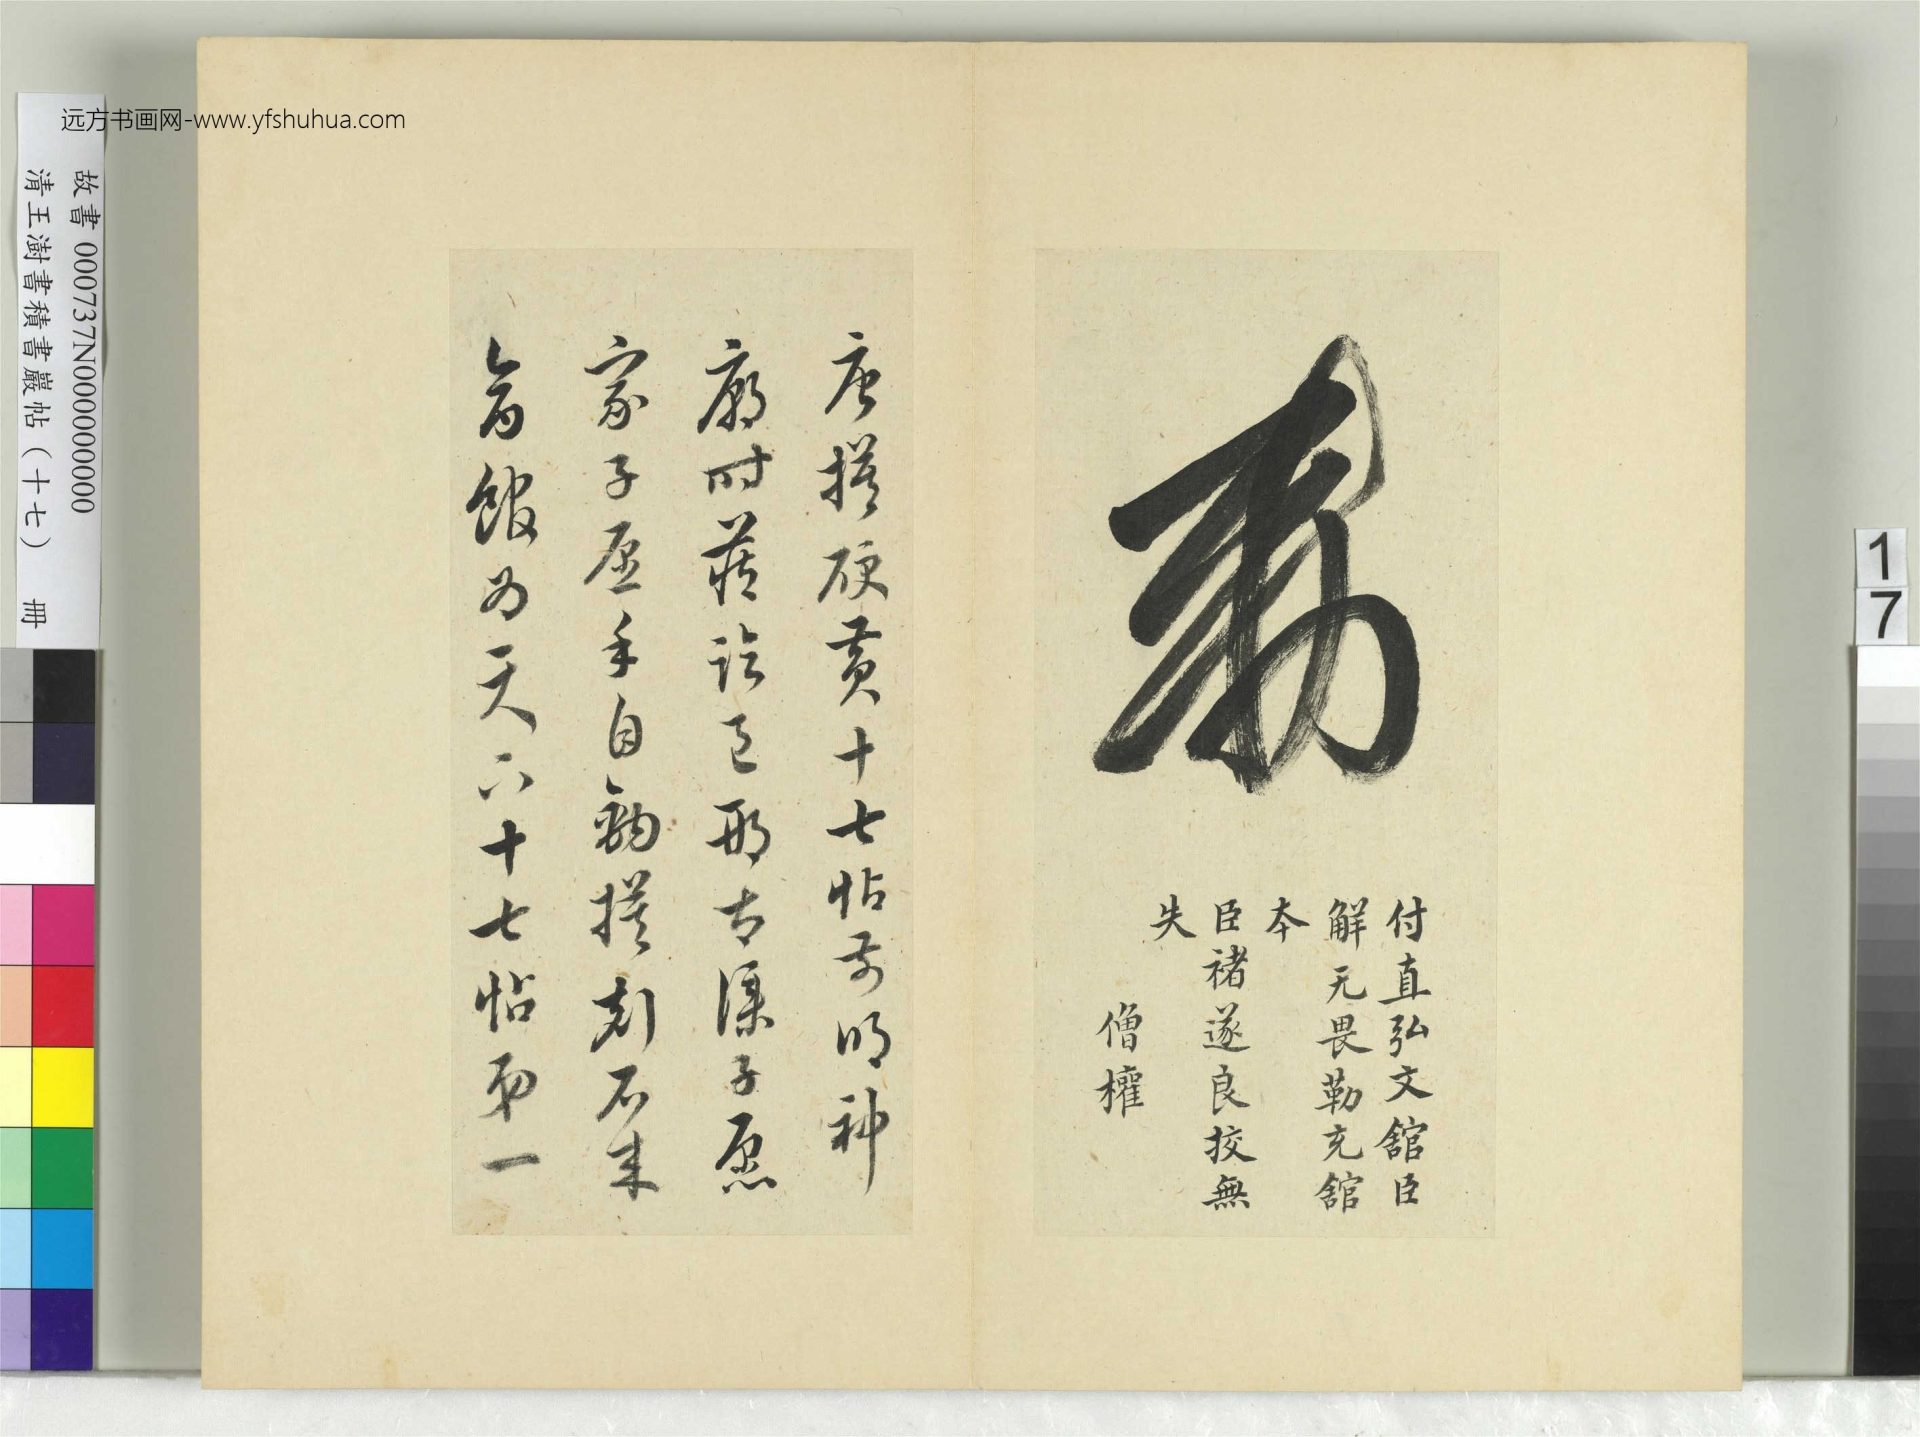 远方书画网-www.yfshuhua.com
故書 000737N000000000
清王澍書積書巖帖（十七） 冊
1
7
敕
付直弘文舘臣
解无畏勒充舘
本
臣褚遂良挍無
失
僧權
唐摸硬黄十七帖前明神
廟時藏臨邑邢太僕子愿
家子愿手自鉤摸刻石来
禽館为天下十七帖第一